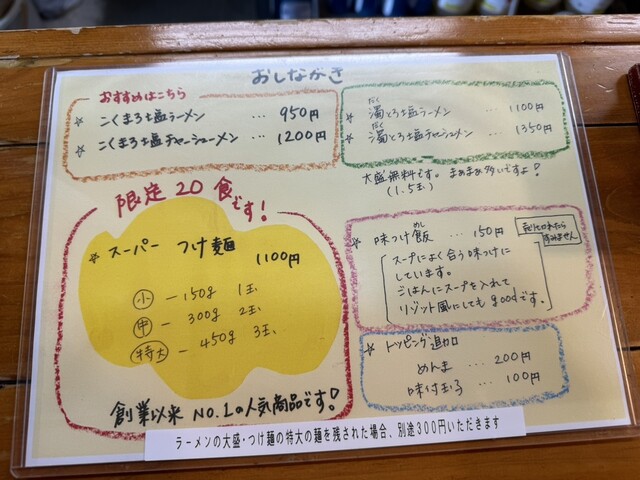 おしながき
おすすめはこちら
☆ こくまろ塩ラーメン … 950円
☆ こくまろ塩チャーシューメン … 1200円
だく
☆ 濁とろ塩ラーメン … 1100円
だく
☆ 濁とろ塩チャーシュメン … 1350円
大盛無料です。まぁまぁ多いですよ!
(1.5玉)
限定20食です!
☆ スーパー つけ麺 1100円
小 ー 150g 1玉
中 ー 300g 2玉
特大 ー 450g 3玉
創業以来 NO.1の人気商品です!
めし
☆ 味つけ飯 … 150円
売り切れたら
すみません
スープによく合う味つけに
しています。
ごはんにスープを入れて
リゾット風にしてもgoodです.
☆ トッピング追加
めんま … 200円
味付玉子 … 100円
ラーメンの大盛・つけ麺の特大の麺を残された場合、別途300円いただきます